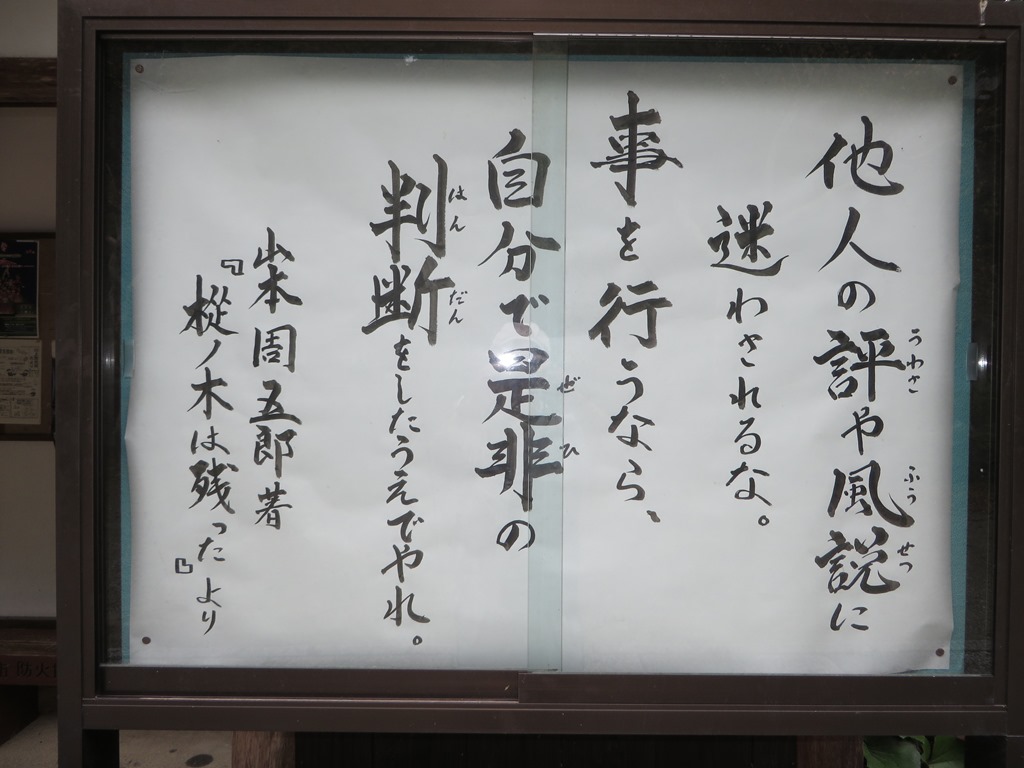 他人の評や風説に
迷わされるな。
事を行うなら、
自分で是非の
判断をしたうえでやれ。
山本周五郎著
『樅ノ木は残った』より
うわさ
ふうせつ
ぜひ
はんだん
防火